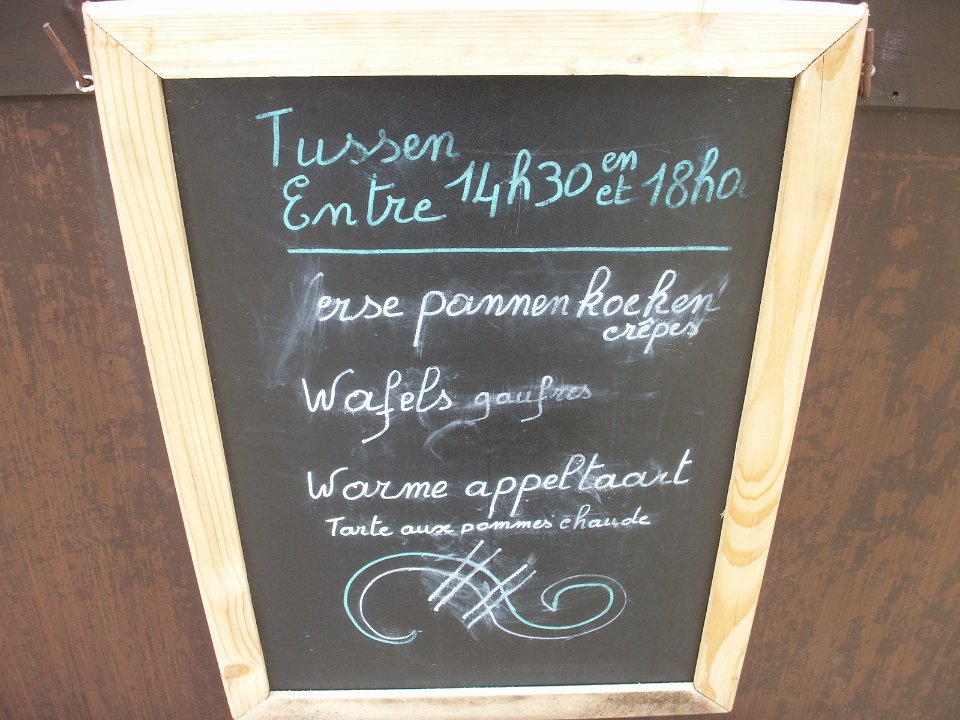 Tussen
Entre 14h30 en et 18h00
erse pannenkoeken
crêpes
Wafels gaufres
Warme appeltaart
Tarte aux pommes chaude